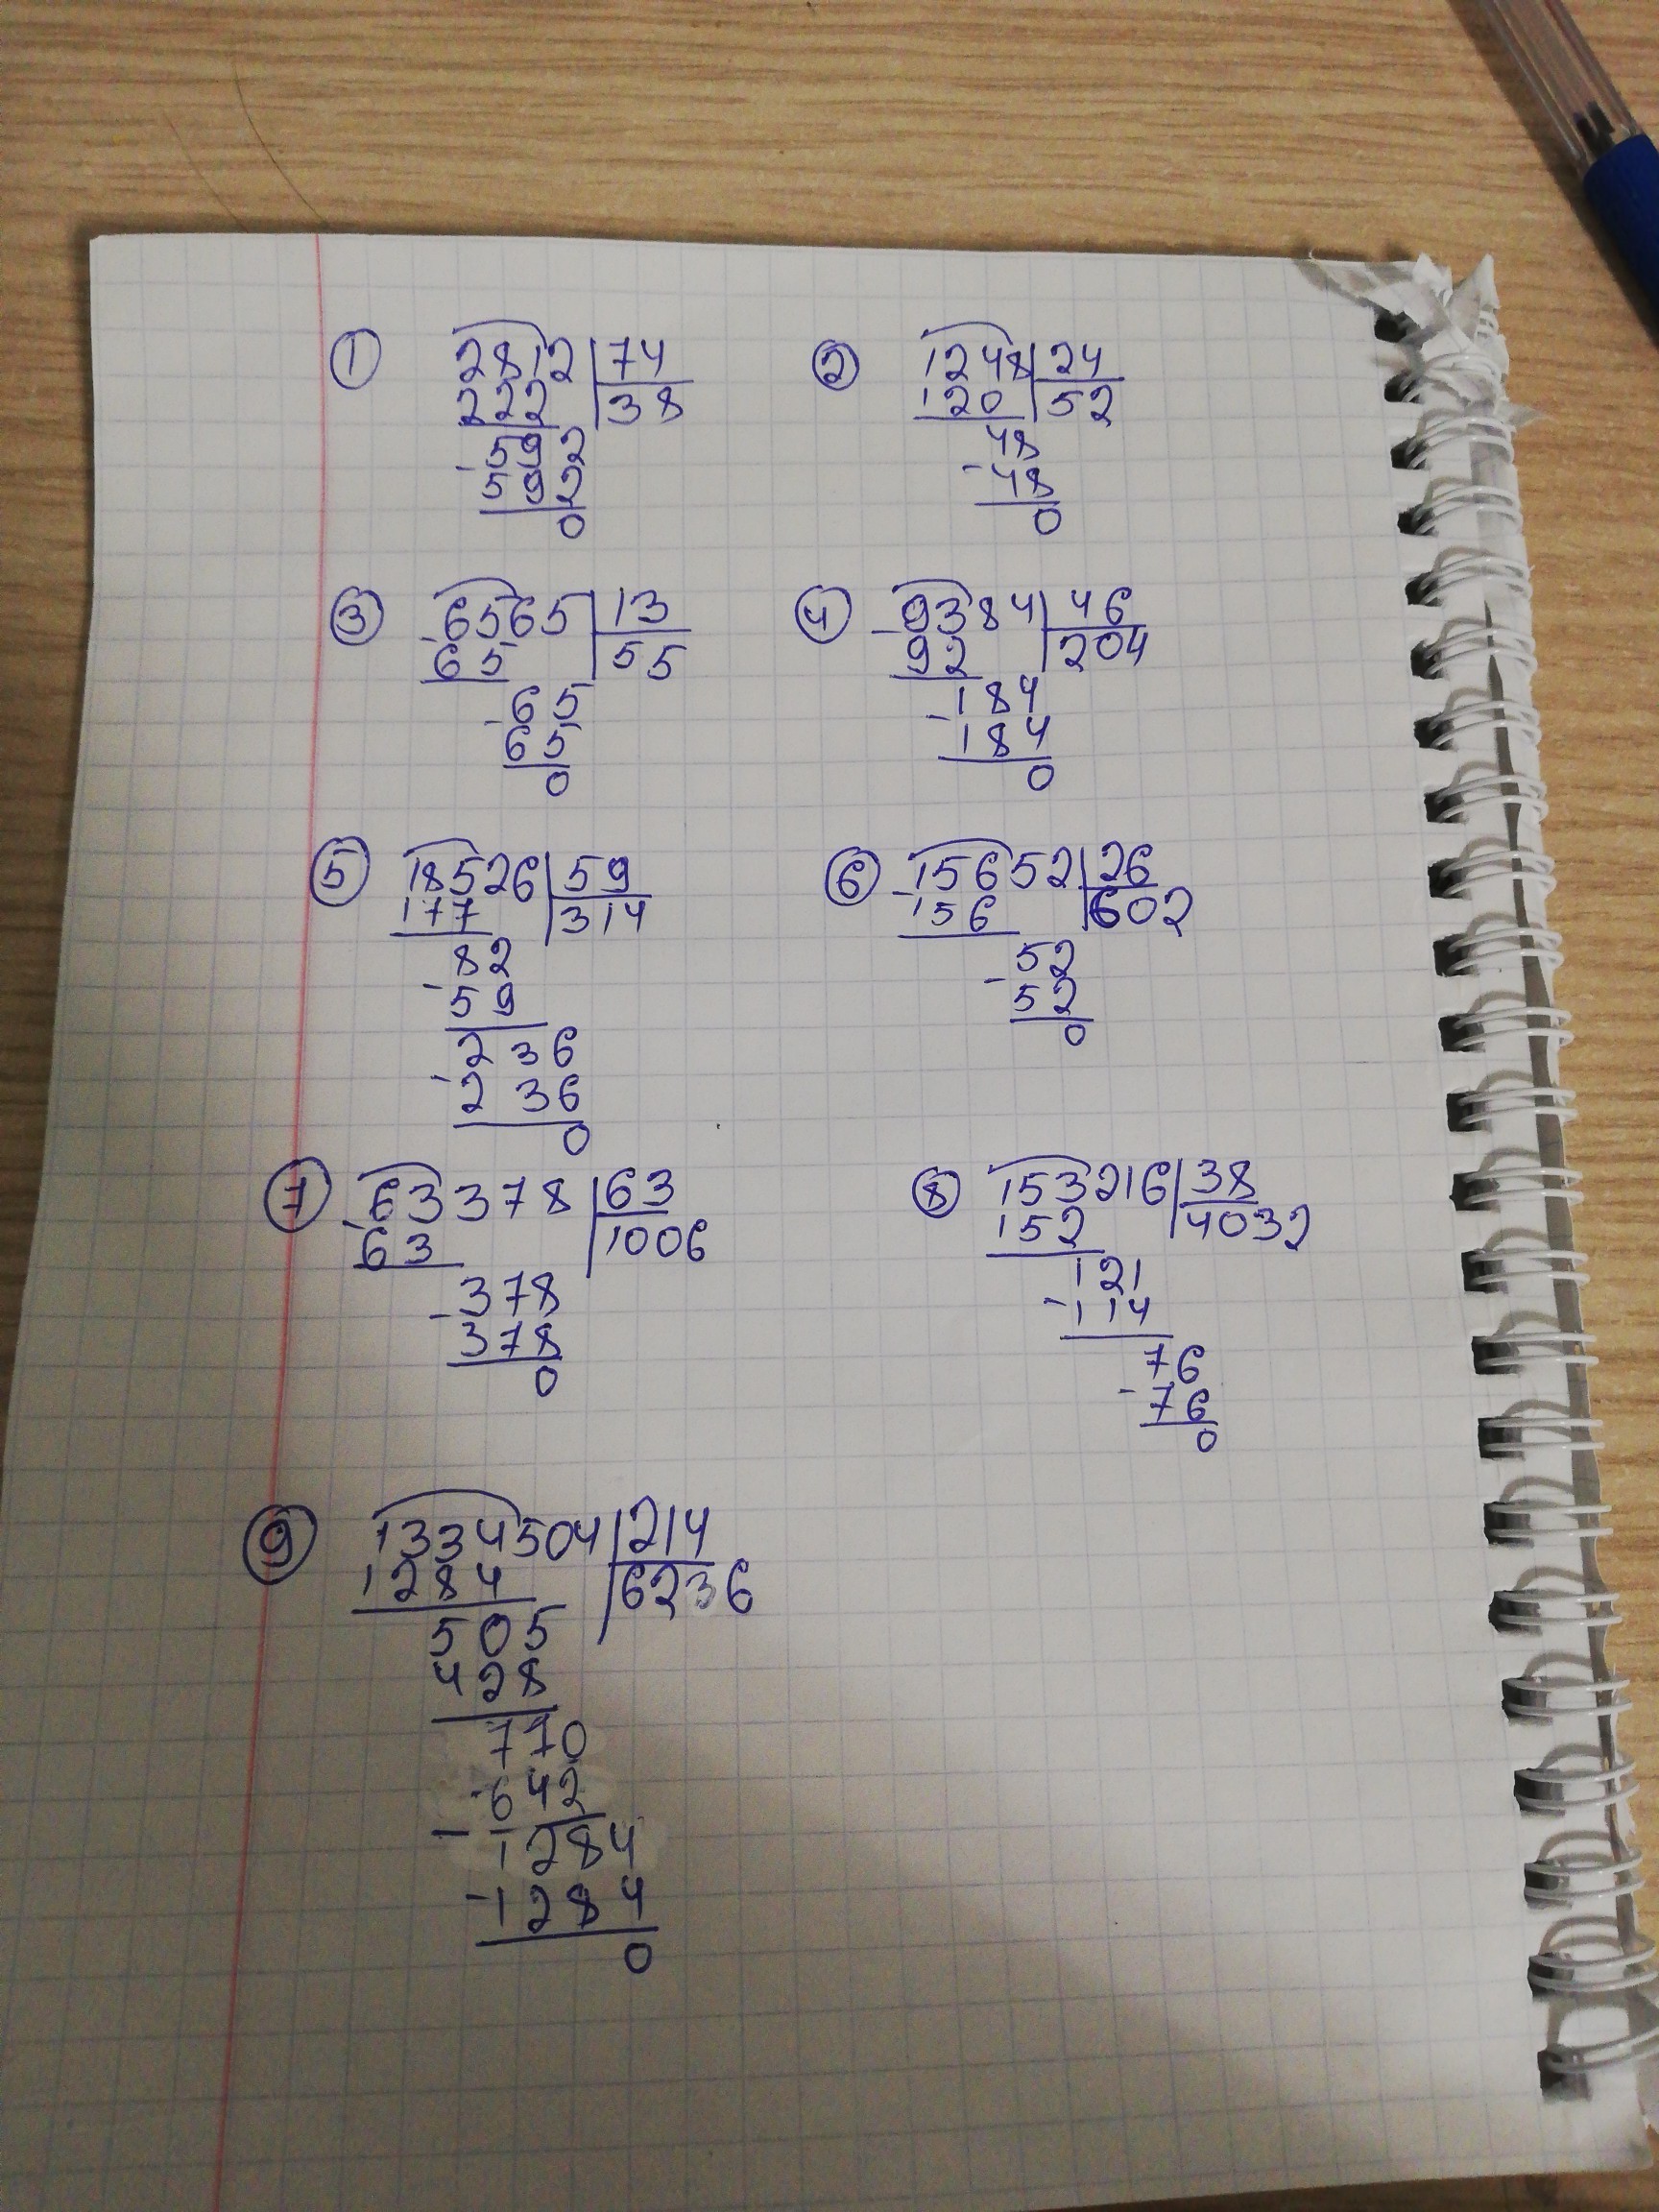 ① 2812 | 74
222 | 38
- 592
592
0
② 1248 | 24
120 | 52
- 48
48
0
③ - 6565 | 13
65 | 55
- 65
65
0
④ - 9384 | 46
92 | 204
- 184
184
0
⑤ 18526 | 59
177 | 314
- 82
59
- 236
236
0
⑥ - 15652 | 26
156 | 602
- 52
52
0
⑦ - 63378 | 63
63 | 1006
- 378
378
0
⑧ 153216 | 38
152 | 4032
- 121
114
- 76
76
0
⑨ 1334504 | 214
1284 | 6236
505
428
770
- 642
- 1284
- 1284
0